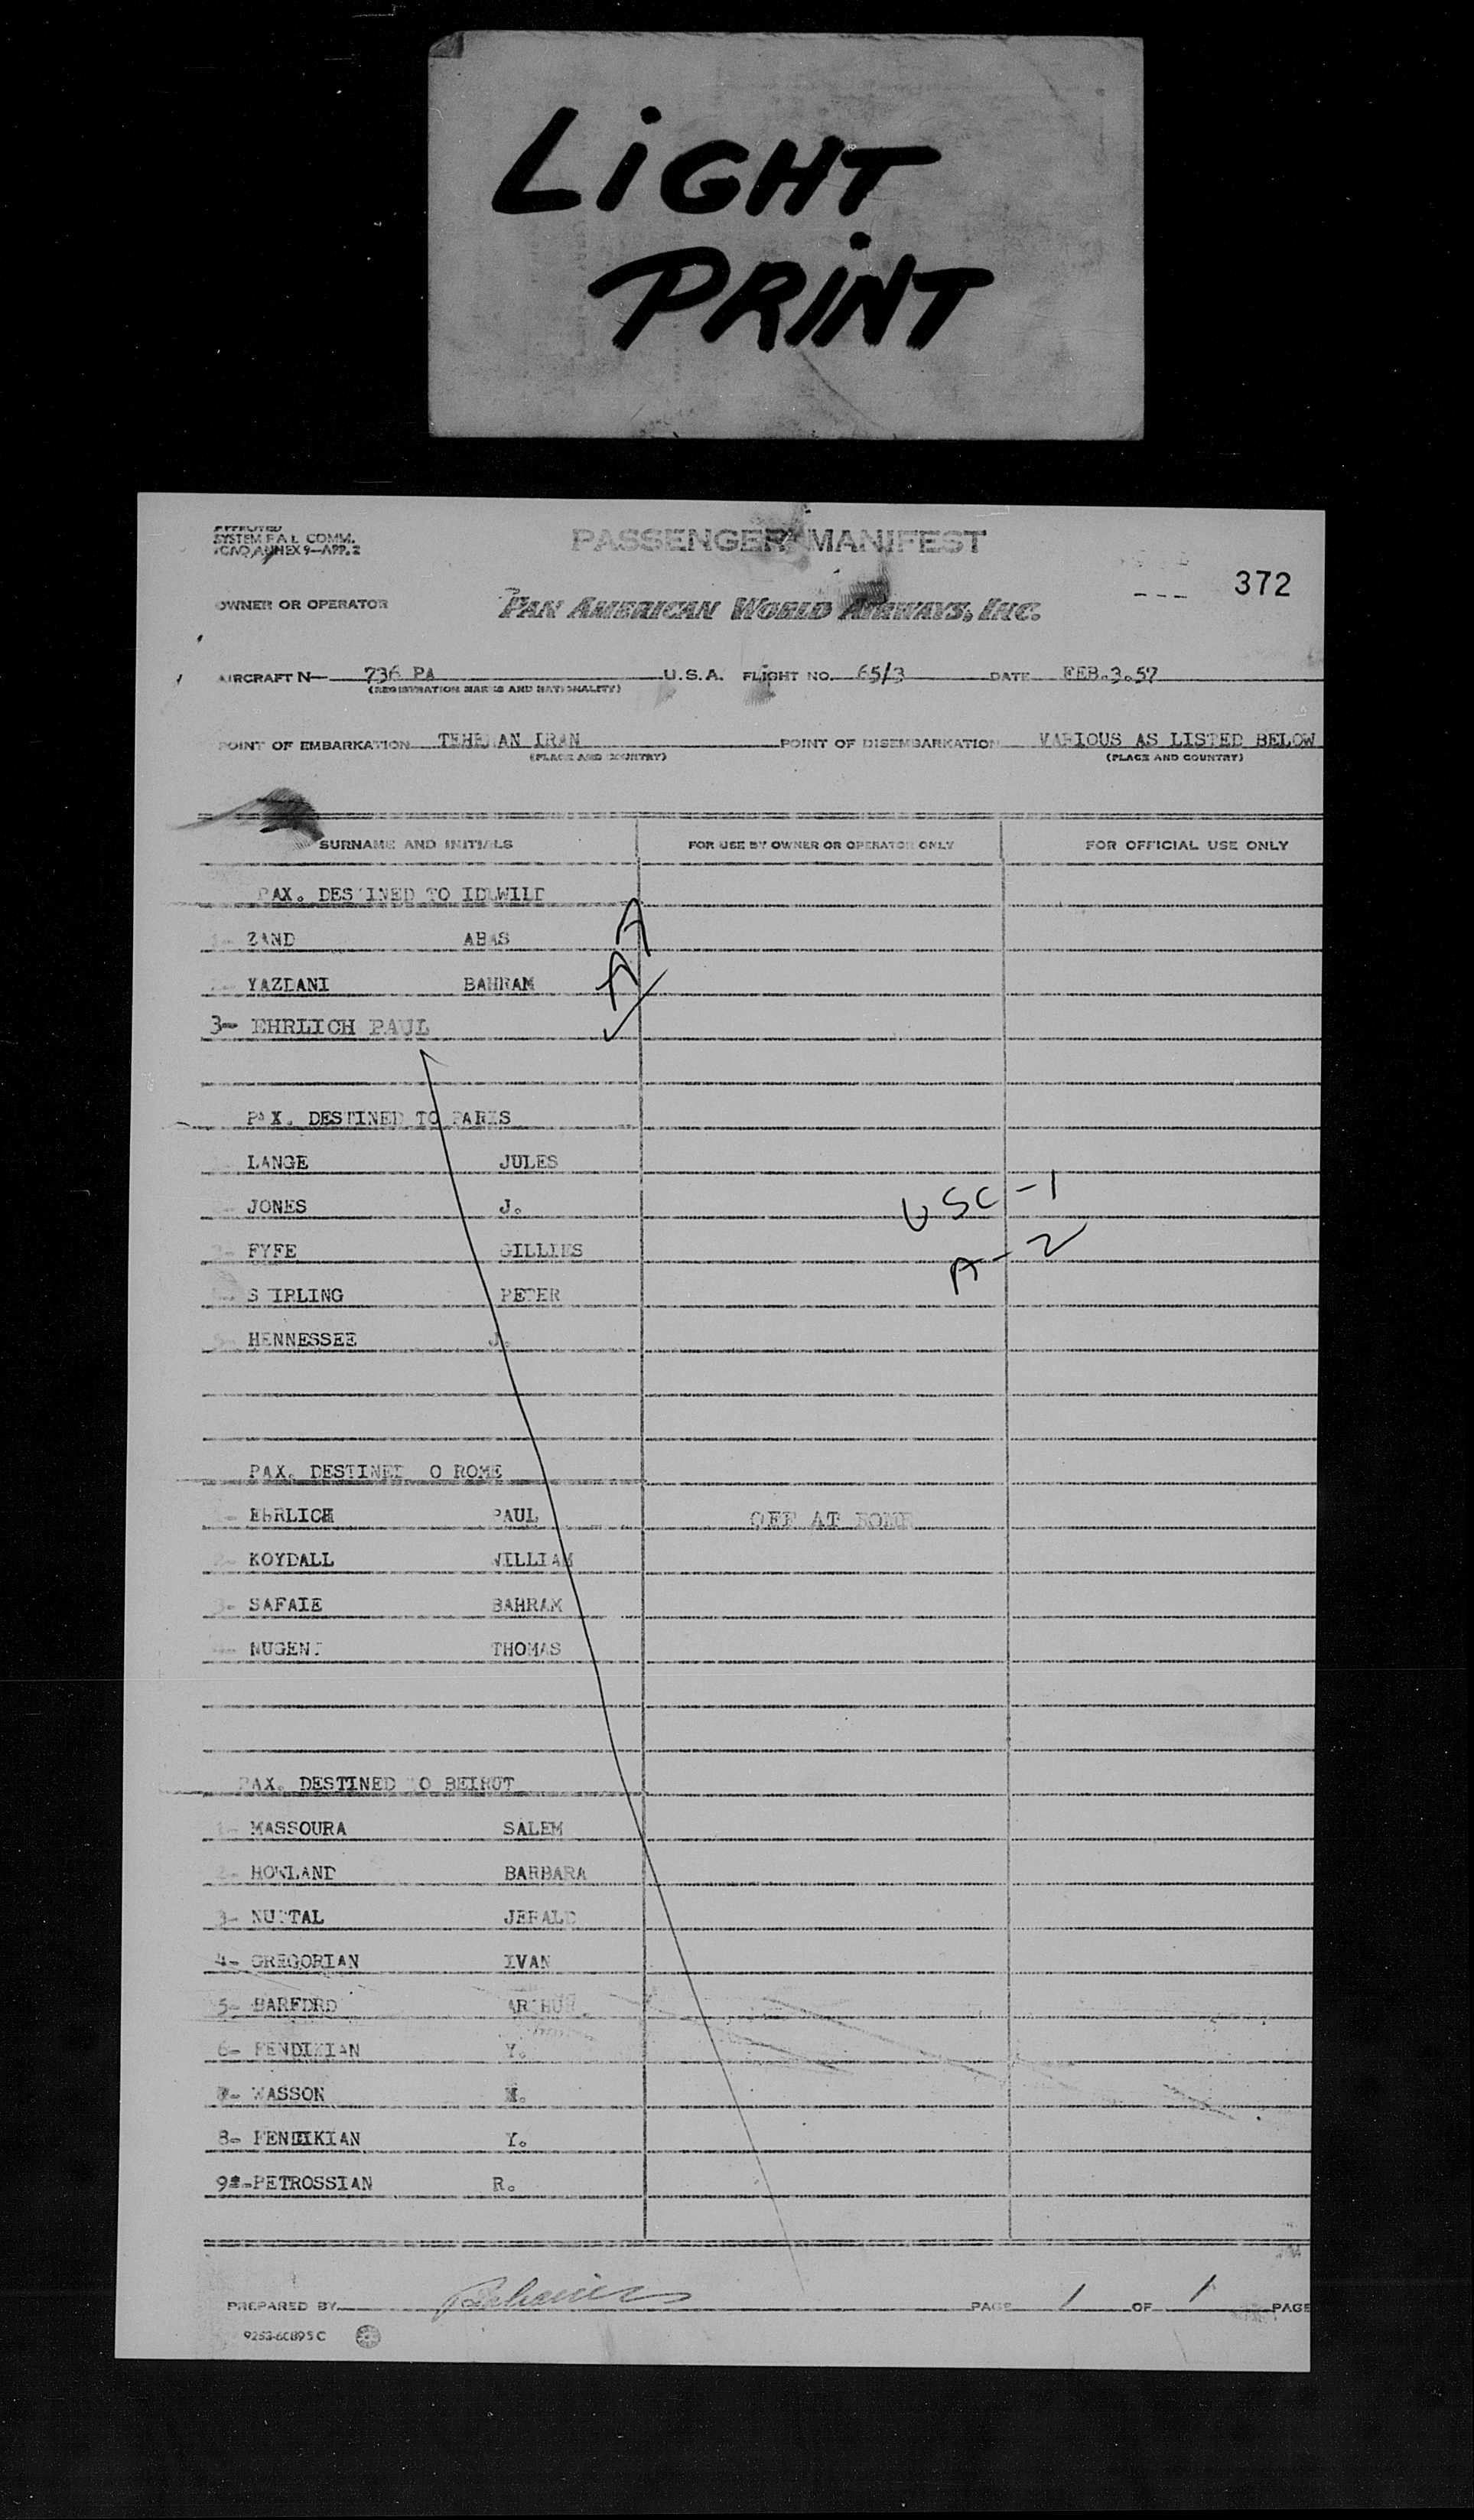 LiGHT
PRiNT
APPROVED
SYSTEM F.A.L. COMM.
ICAO ANNEX 9—APP. 2
PASSENGER MANIFEST
372
OWNER OR OPERATOR PAN AMERICAN WORLD AIRWAYS, INC.
AIRCRAFT N— 736 PA U.S.A. FLIGHT NO. 65/3 DATE FEB.3.57
(REGISTRATION MARKS AND NATIONALITY)
POINT OF EMBARKATION TEHERAN IRAN POINT OF DISEMBARKATION VARIOUS AS LISTED BELOW
(PLACE AND COUNTRY) (PLACE AND COUNTRY)
SURNAME AND INITIALS FOR USE BY OWNER OR OPERATOR ONLY FOR OFFICIAL USE ONLY
PAX. DESTINED TO IDLWILD
ZAND ABAS A
YAZDANI BAHRAM A
3- EHRLICH PAUL ✓
PAX. DESTINED TO PARIS
LANGE JULES
JONES J. USC-1
FYFE GILLIES A-2
STIRLING PETER
5- HENNESSEE J.
PAX. DESTINED TO ROME
1- EHRLICH PAUL OFF AT ROME
2- KOYDALL WILLIAM
3- SAFAIE BAHRAM
NUGENT THOMAS
PAX. DESTINED TO BEIRUT
1- MASSOURA SALEM
2- HOWLAND BARBARA
3- NUTTAL JERALD
4- GREGORIAN IVAN
5- BARFDRD ARTHUR
6- PENDIKIAN Y.
7- WASSON M.
8- PENDIKIAN Y.
9-PETROSSIAN R.
PREPARED BY PAGE 1 OF 1 PAGE
9253-6C895 C